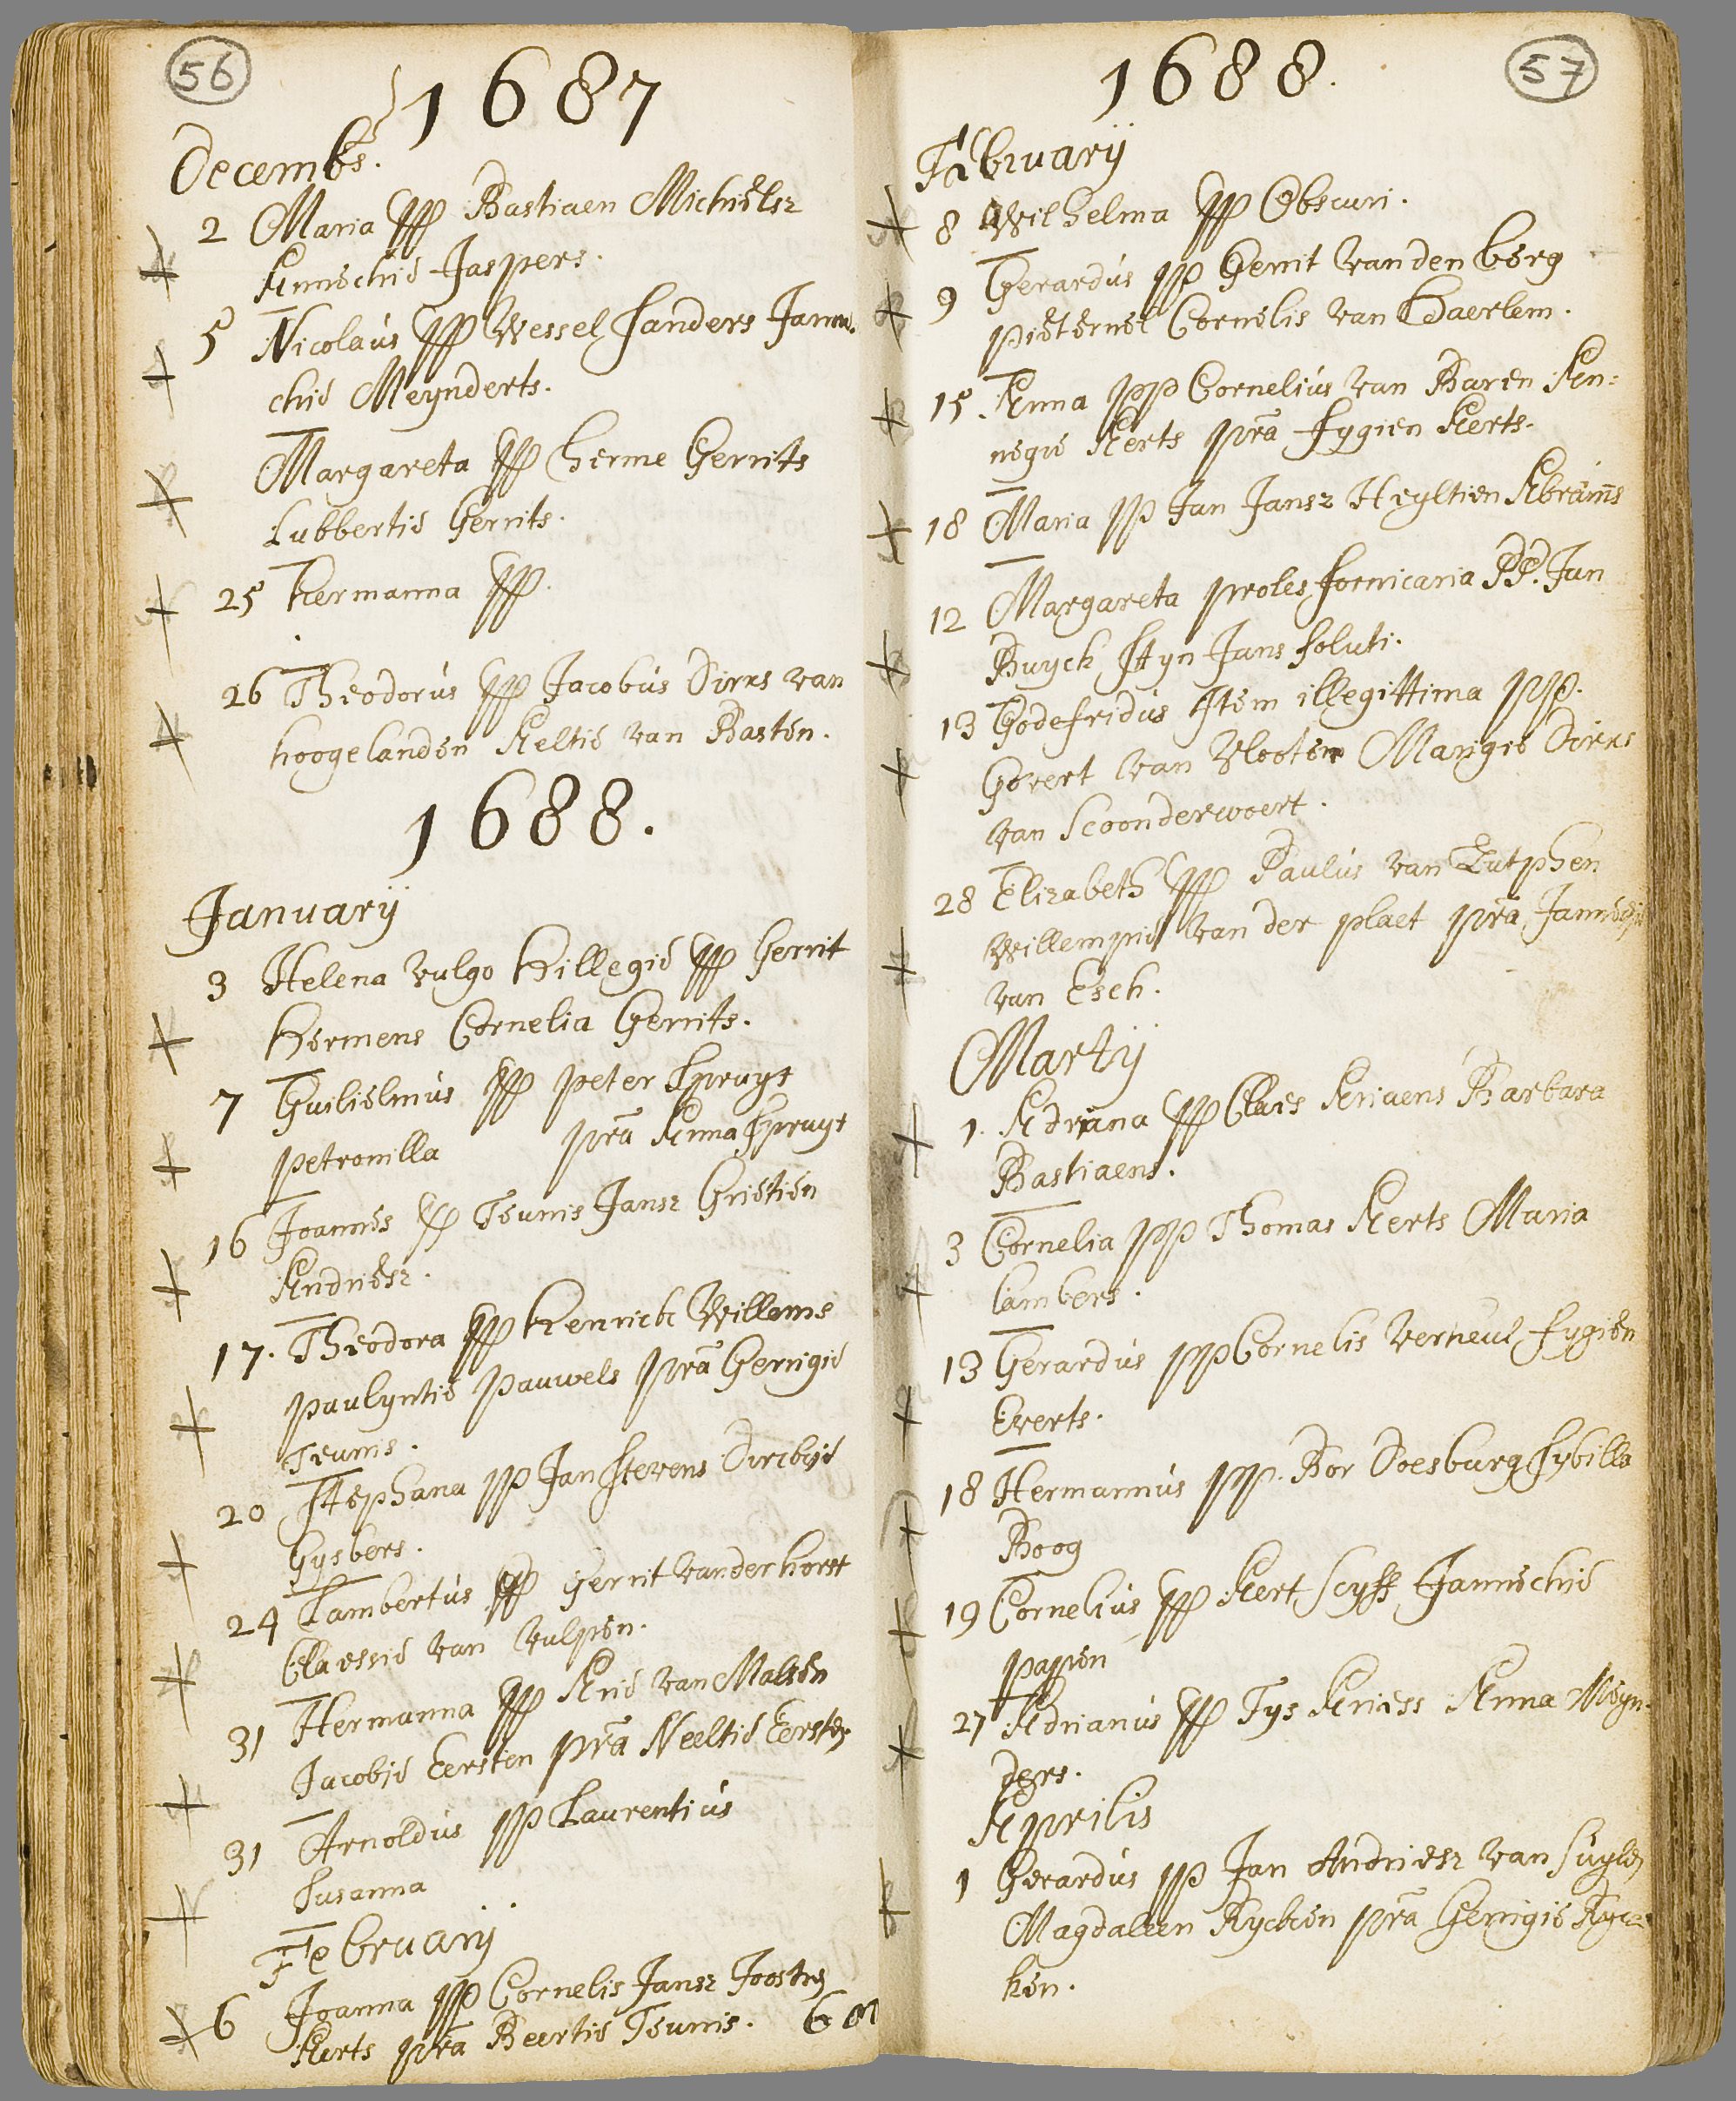 56
1687
Decembs.
2 Maria PP Bastiaen Michielsz
Annechie Jaspers.
5 Nicolaús PP Wessel Sanders Jann.
chie Meynderts.
Margareta PP herme Gerrits
Lubbertie Gerrits.
25 Hermanna PP.
26 Theodorús PP Jacobús Dirks van
hoogelanden Aeltie van Basten.
1688.
Januarij
3 Helena vulgo Hillegie PP Gerrit
Hermens Cornelia Gerrits.
7 Guilielmús PP peter Spruyt
petronilla prã Anna Spruyt
16 Joannes PP Teunis Jansz Grietien
Andriesz.
17. Theodora PP Henrick Willems
paulyntie pauwels prã Gerrigie
Teunis.
20 Stephana PP Jan Stevens Dirckie
Gysbers.
24 Lambertús PP Gerrit vander horst
Claessie van vulpen.
31 Hermanna PP Arie van Malsen
Jacobje Eersten prã Neeltie Eersten
31 Arnoldús PP Laurentiús
Susanna
Februarij
6 Joanna PP Cornelis Jansz Joosten
Aerts prã Beertie Teunis.
57
1688.
Februarij
8 Wilhelma PP Obscuri.
9 Gerardús PP Gerrit vanden berg
pieternel Cornelis van Haerlem.
15. Anna PP Cornelius van Baren An=
negie Aerts prã Fygien Aerts.
18 Maria PP Jan Jansz Heyltien Abrams
12 Margareta proles fornicaria PP. Jan
Buyck Styn Jans soluti.
13 Godefridús Item illegittima PP.
Govert van Vlooten Marigie Dirks
van Scoonderwoert.
28 Elizabeth PP Paulús van Zutphen
Willempie van der plaet prã Jannegie
van Esch.
Martij
1. Adriana PP Claes Ariaens Barbara
Bastiaens.
3 Cornelia PP Thomas Aerts Maria
lambers.
13 Gerardús PP Cornelis verheul Fygien
Everts.
18 Hermannús PP. Bor Doesburg Sybilla
Boog
19 Cornelius PP Aert Scyff Jannechie
pappen
27 Adrianús PP Tys Ariess Anna Meyn
ders.
Aprilis
1 Gerardús PP Jan Andriesz van Suylen
Magdaleen Rycken prã Gerrigie Ryc=
ken.